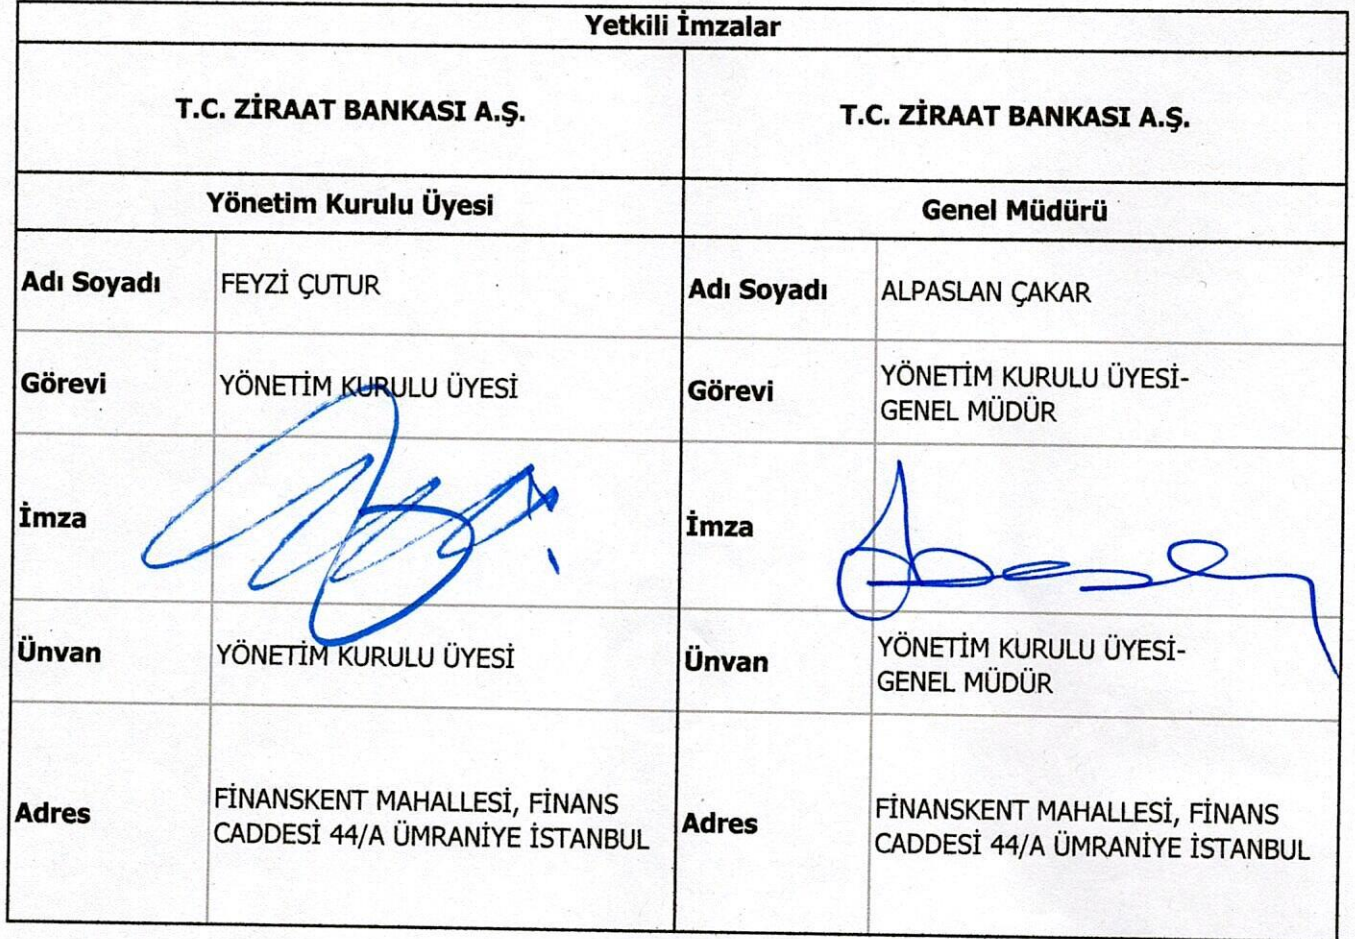 Yetkili İmzalar
T.C. ZİRAAT BANKASI A.Ş.
T.C. ZİRAAT BANKASI A.Ş.
Yönetim Kurulu Üyesi
Genel Müdürü
Adı Soyadı
FEYZİ ÇUTUR
Adı Soyadı
ALPASLAN ÇAKAR
Görevi
YÖNETİM KURULU ÜYESİ
Görevi
YÖNETİM KURULU ÜYESİ-
GENEL MÜDÜR
İmza
İmza
Ünvan
YÖNETİM KURULU ÜYESİ
Ünvan
YÖNETİM KURULU ÜYESİ-
GENEL MÜDÜR
Adres
FİNANSKENT MAHALLESİ, FİNANS
CADDESİ 44/A ÜMRANİYE İSTANBUL
Adres
FİNANSKENT MAHALLESİ, FİNANS
CADDESİ 44/A ÜMRANİYE İSTANBUL